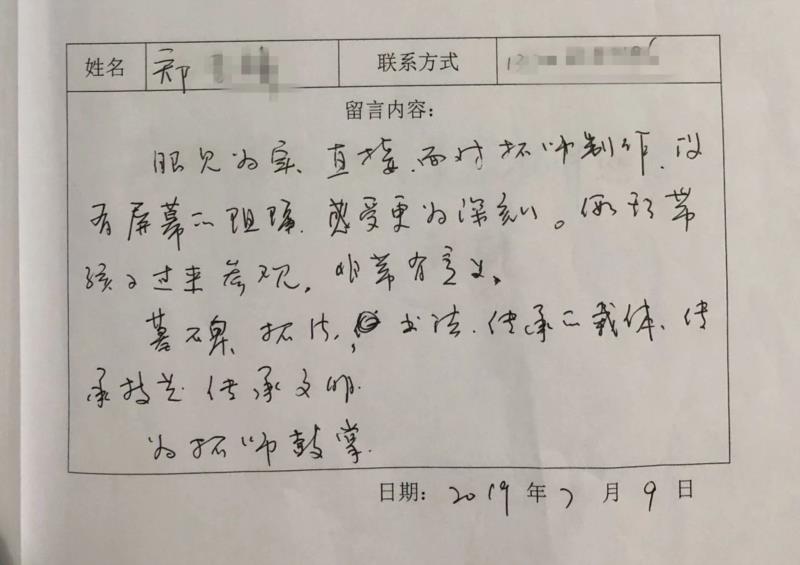 姓名 郑 联系方式
留言内容：
眼见为实、直接、面对拓师制作，没
有屏幕的阻碍，感受更为深刻。假期带
孩子过来参观，非常有意义。
墓碑、拓片，书法、传承的载体、传
承技艺 传承文明.
为拓师鼓掌.
日期：2019 年 7 月 9 日